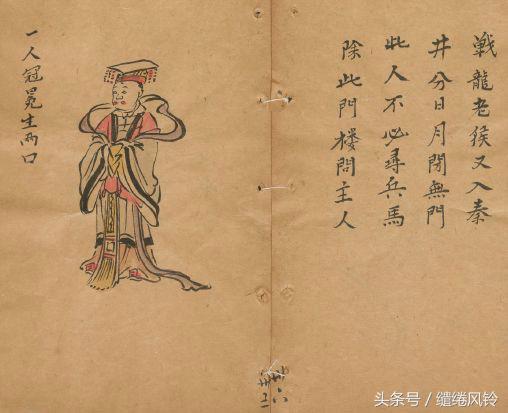 戦龍老猴又入秦
井分日月閉無門
此人不必尋兵馬
除此門楼問主人
一人冠冕生両口
头条号 / 缱绻风铃